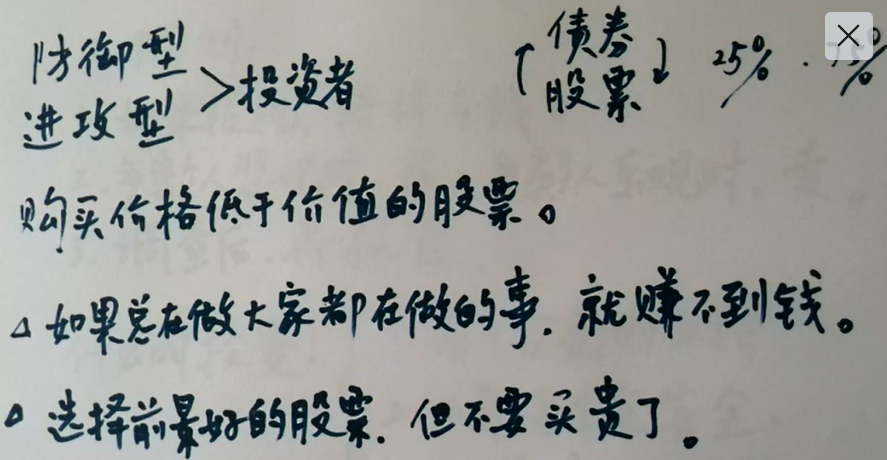 防御型
进攻型 >投资者
↑债券
股票↓ 25% · 75%
购买价格低于价值的股票。
△ 如果总在做大家都在做的事. 就赚不到钱。
△ 选择前景好的股票. 但不要买贵了。